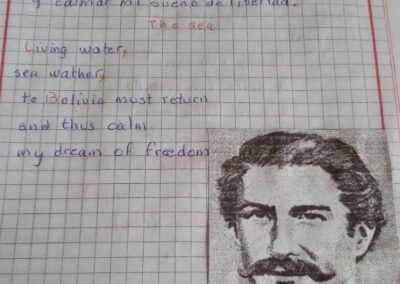 y calmar mi sueño de libertad.
The sea
Living water,
sea wather,
to Bolivia must return
and thus calm
my dream of freedom